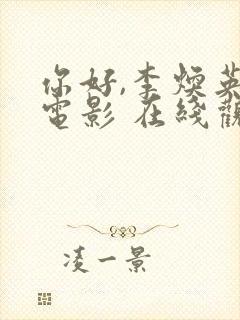 你好,李焕英
電影 在綫觀
凌一景